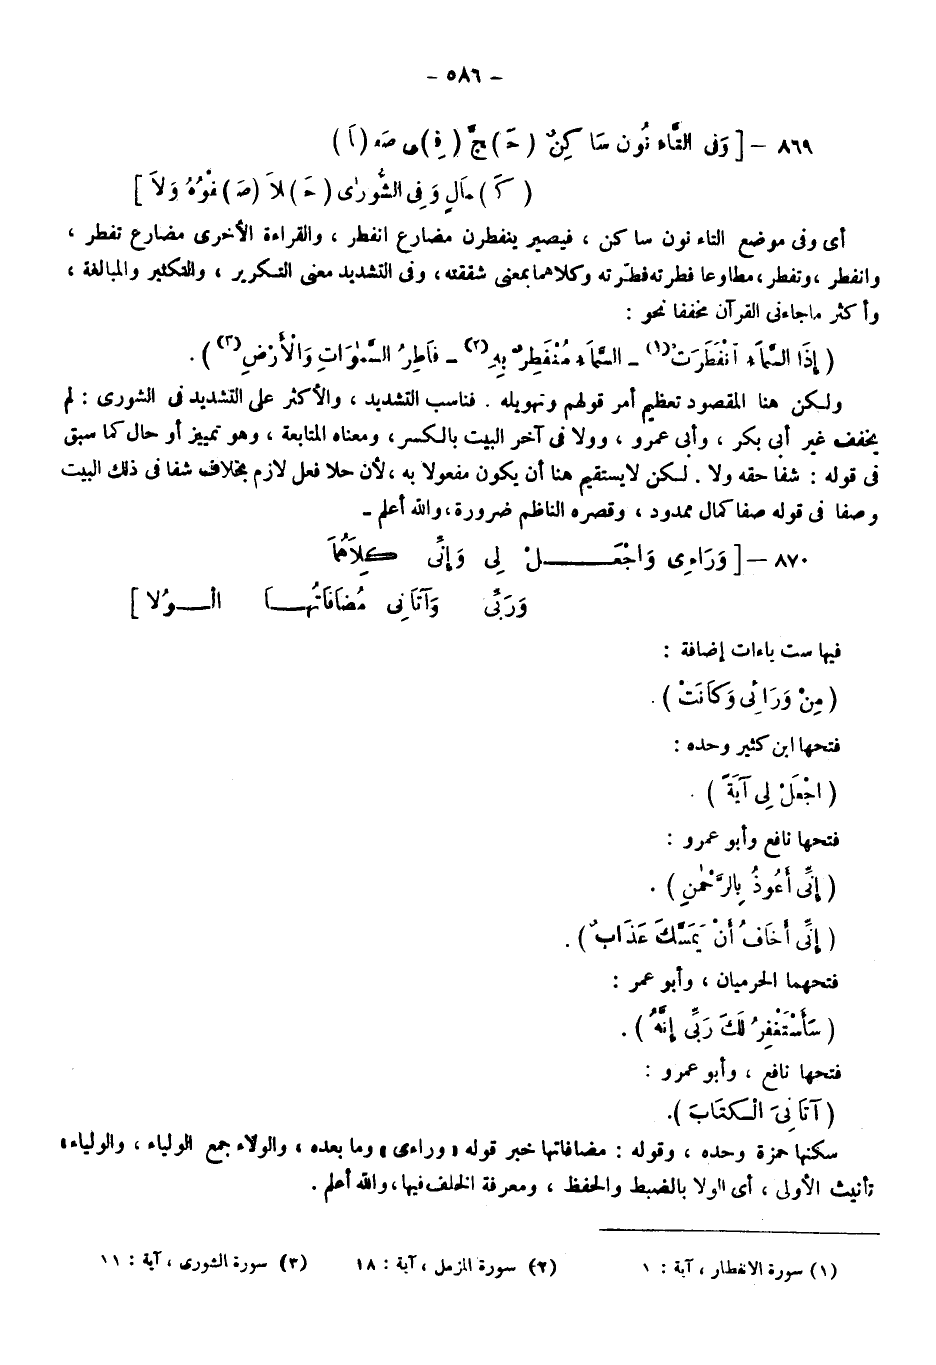 - ٥٨٦ -
٨٦٩ - [ وَفى التَّاء نُون سَا كِنٌ ( حَـ ) جَّ ( فِـ ) ى صَـ ( ـفَا )
( كَـ ) ـمَالٍ وَفِى الشُّورٰى ( حَـ ) لاَ ( صَـ ) فْوُهُ وَلاَ ]
أى وفى موضع التاء نون ساكن ، فيصير ينفطرن مضارع انفطر ، والقراءة الأخرى مضارع تفطر ،
وانفطر ، وتفطر ، مطاوعا فطرته فطّرته وكلاهما بمعنى شققته ، وفى التشديد معنى التكرير ، والتكثير والمبالغة ،
وأكثر ماجاء فى القرآن مخففا نحو :
( إِذَا السَّمَآءُ آنْفَطَرَتْ (١) ـ السَّمَآءُ مُنْفَطِرٌ بِهِ (٢) ـ فَاطِرُ السَّمٰوَاتِ وَالْأَرْضِ (٣) ) .
ولكن هنا المقصود تعظيم أمر قولهم وتهويله . فناسب التشديد ، والأكثر على التشديد فى الشورى : لم
يخفف غير أبى بكر ، وأبى عمرو ، وولا فى آخر البيت بالكسر، ومعناه المتابعة ، وهو تمييز أو حال كما سبق
فى قوله : شفا حقه ولا . لكن لايستقيم هنا أن يكون مفعولا به ، لأن حلا فعل لازم بخلاف شفا فى ذلك البيت
وصفا فى قوله صفا كمال ممدود ، وقصره الناظم ضرورة ، والله أعلم ـ
٨٧٠ - [ وَرَاءِى وَاجْعَـــلْ لِى وَإِنِّى كِلَاهُمَا
وَرَبِّى وَآتَانِى مُضَافَاتُهَـــا الْـــوُلا ]
فيها ست ياءات إضافة :
( مِنْ وَرَائِى وَكَانَتْ ) .
فتحها ابن كثير وحده :
( اجْعَلْ لِى آيَةً ) .
فتحها نافع وأبو عمرو :
( إِنِّى أَعُوذُ بِالرَّحْمٰنِ ) .
( إِنِّى أَخَافُ أَنْ يَمَسَّكَ عَذَابٌ ) .
فتحهما الحرميان ، وأبو عمر :
( سَأَسْتَغْفِرُ لَكَ رَبِّى إِنَّهُ ) .
فتحها نافع ، وأبو عمرو :
( آتَانِىَ الْكِتَابَ ) .
سكنها حمزة وحده ، وقوله : مضافاتها خبر قوله « وراءى » وما بعده ، والولاء جمع الولياء ، والولياء
تأنيث الأولى ، أى الولا بالضبط والحفظ ، ومعرفة الخلف فيها ، والله أعلم .
(١) سورة الانفطار ، آية : ١ (٢) سورة المزمل ، آية : ١٨ (٣) سورة الشورى ، آية : ١١